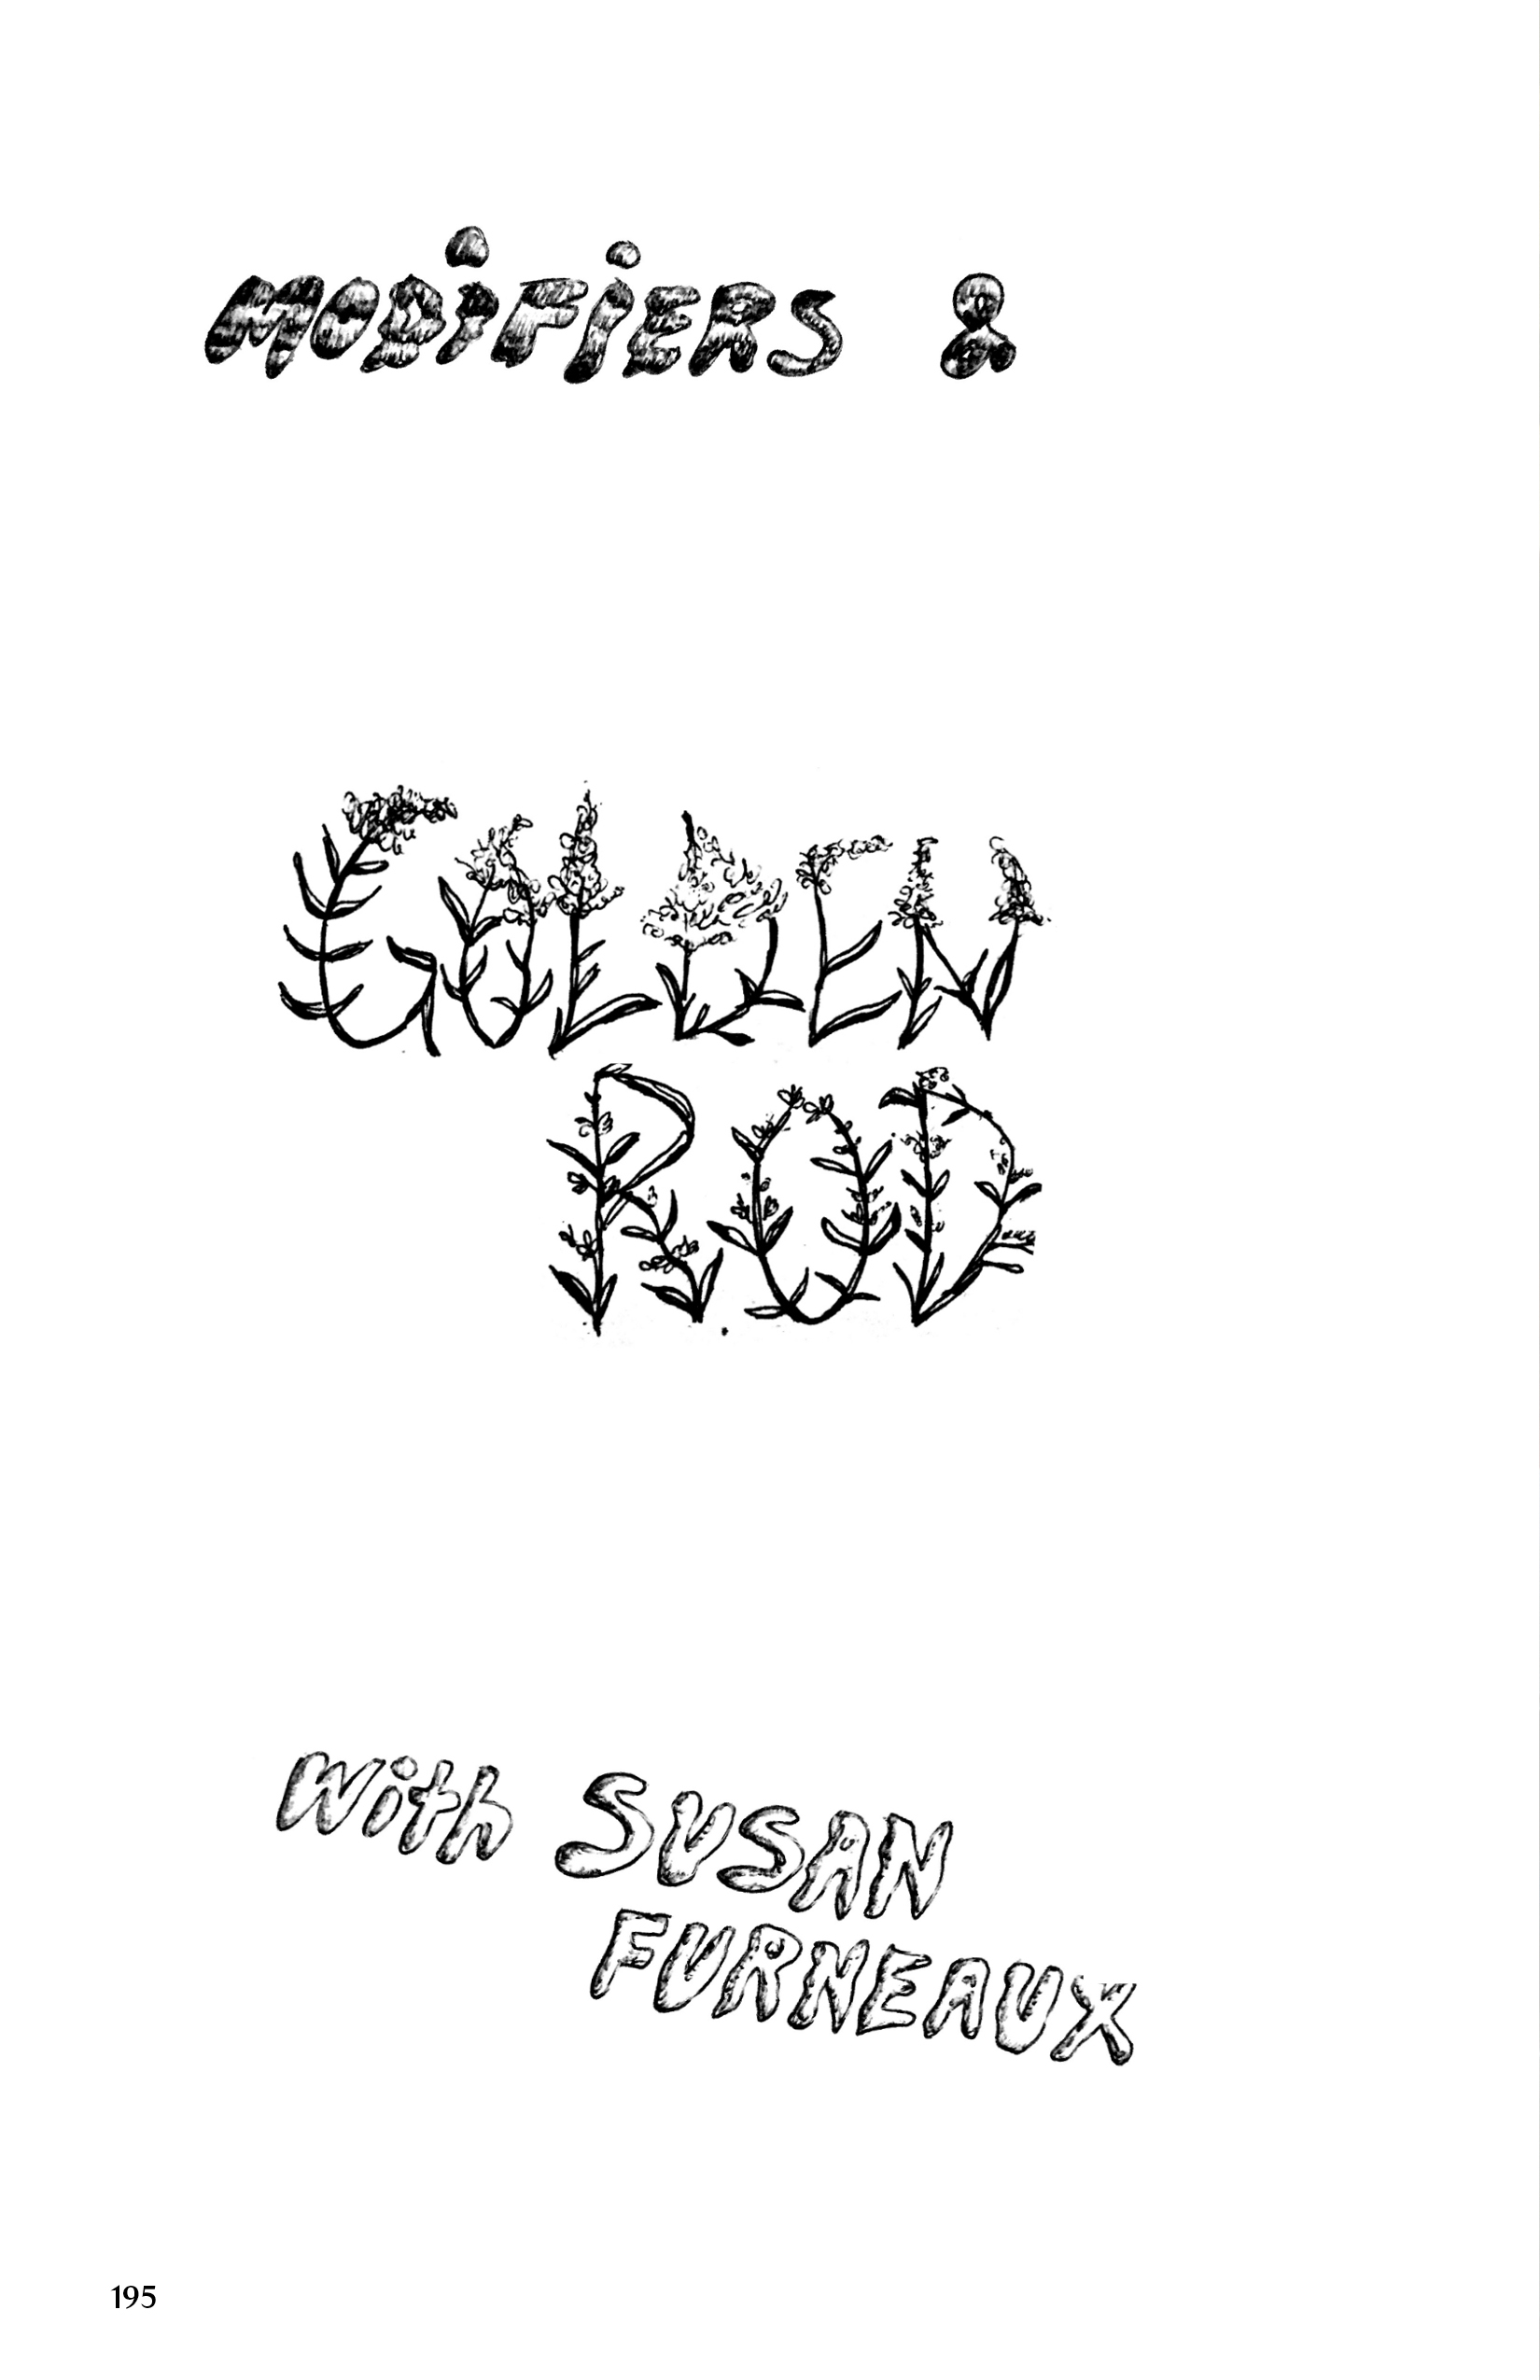 MODiFiERS &
GOLDEN
ROD
With SUSAN
FURNEAUX
195